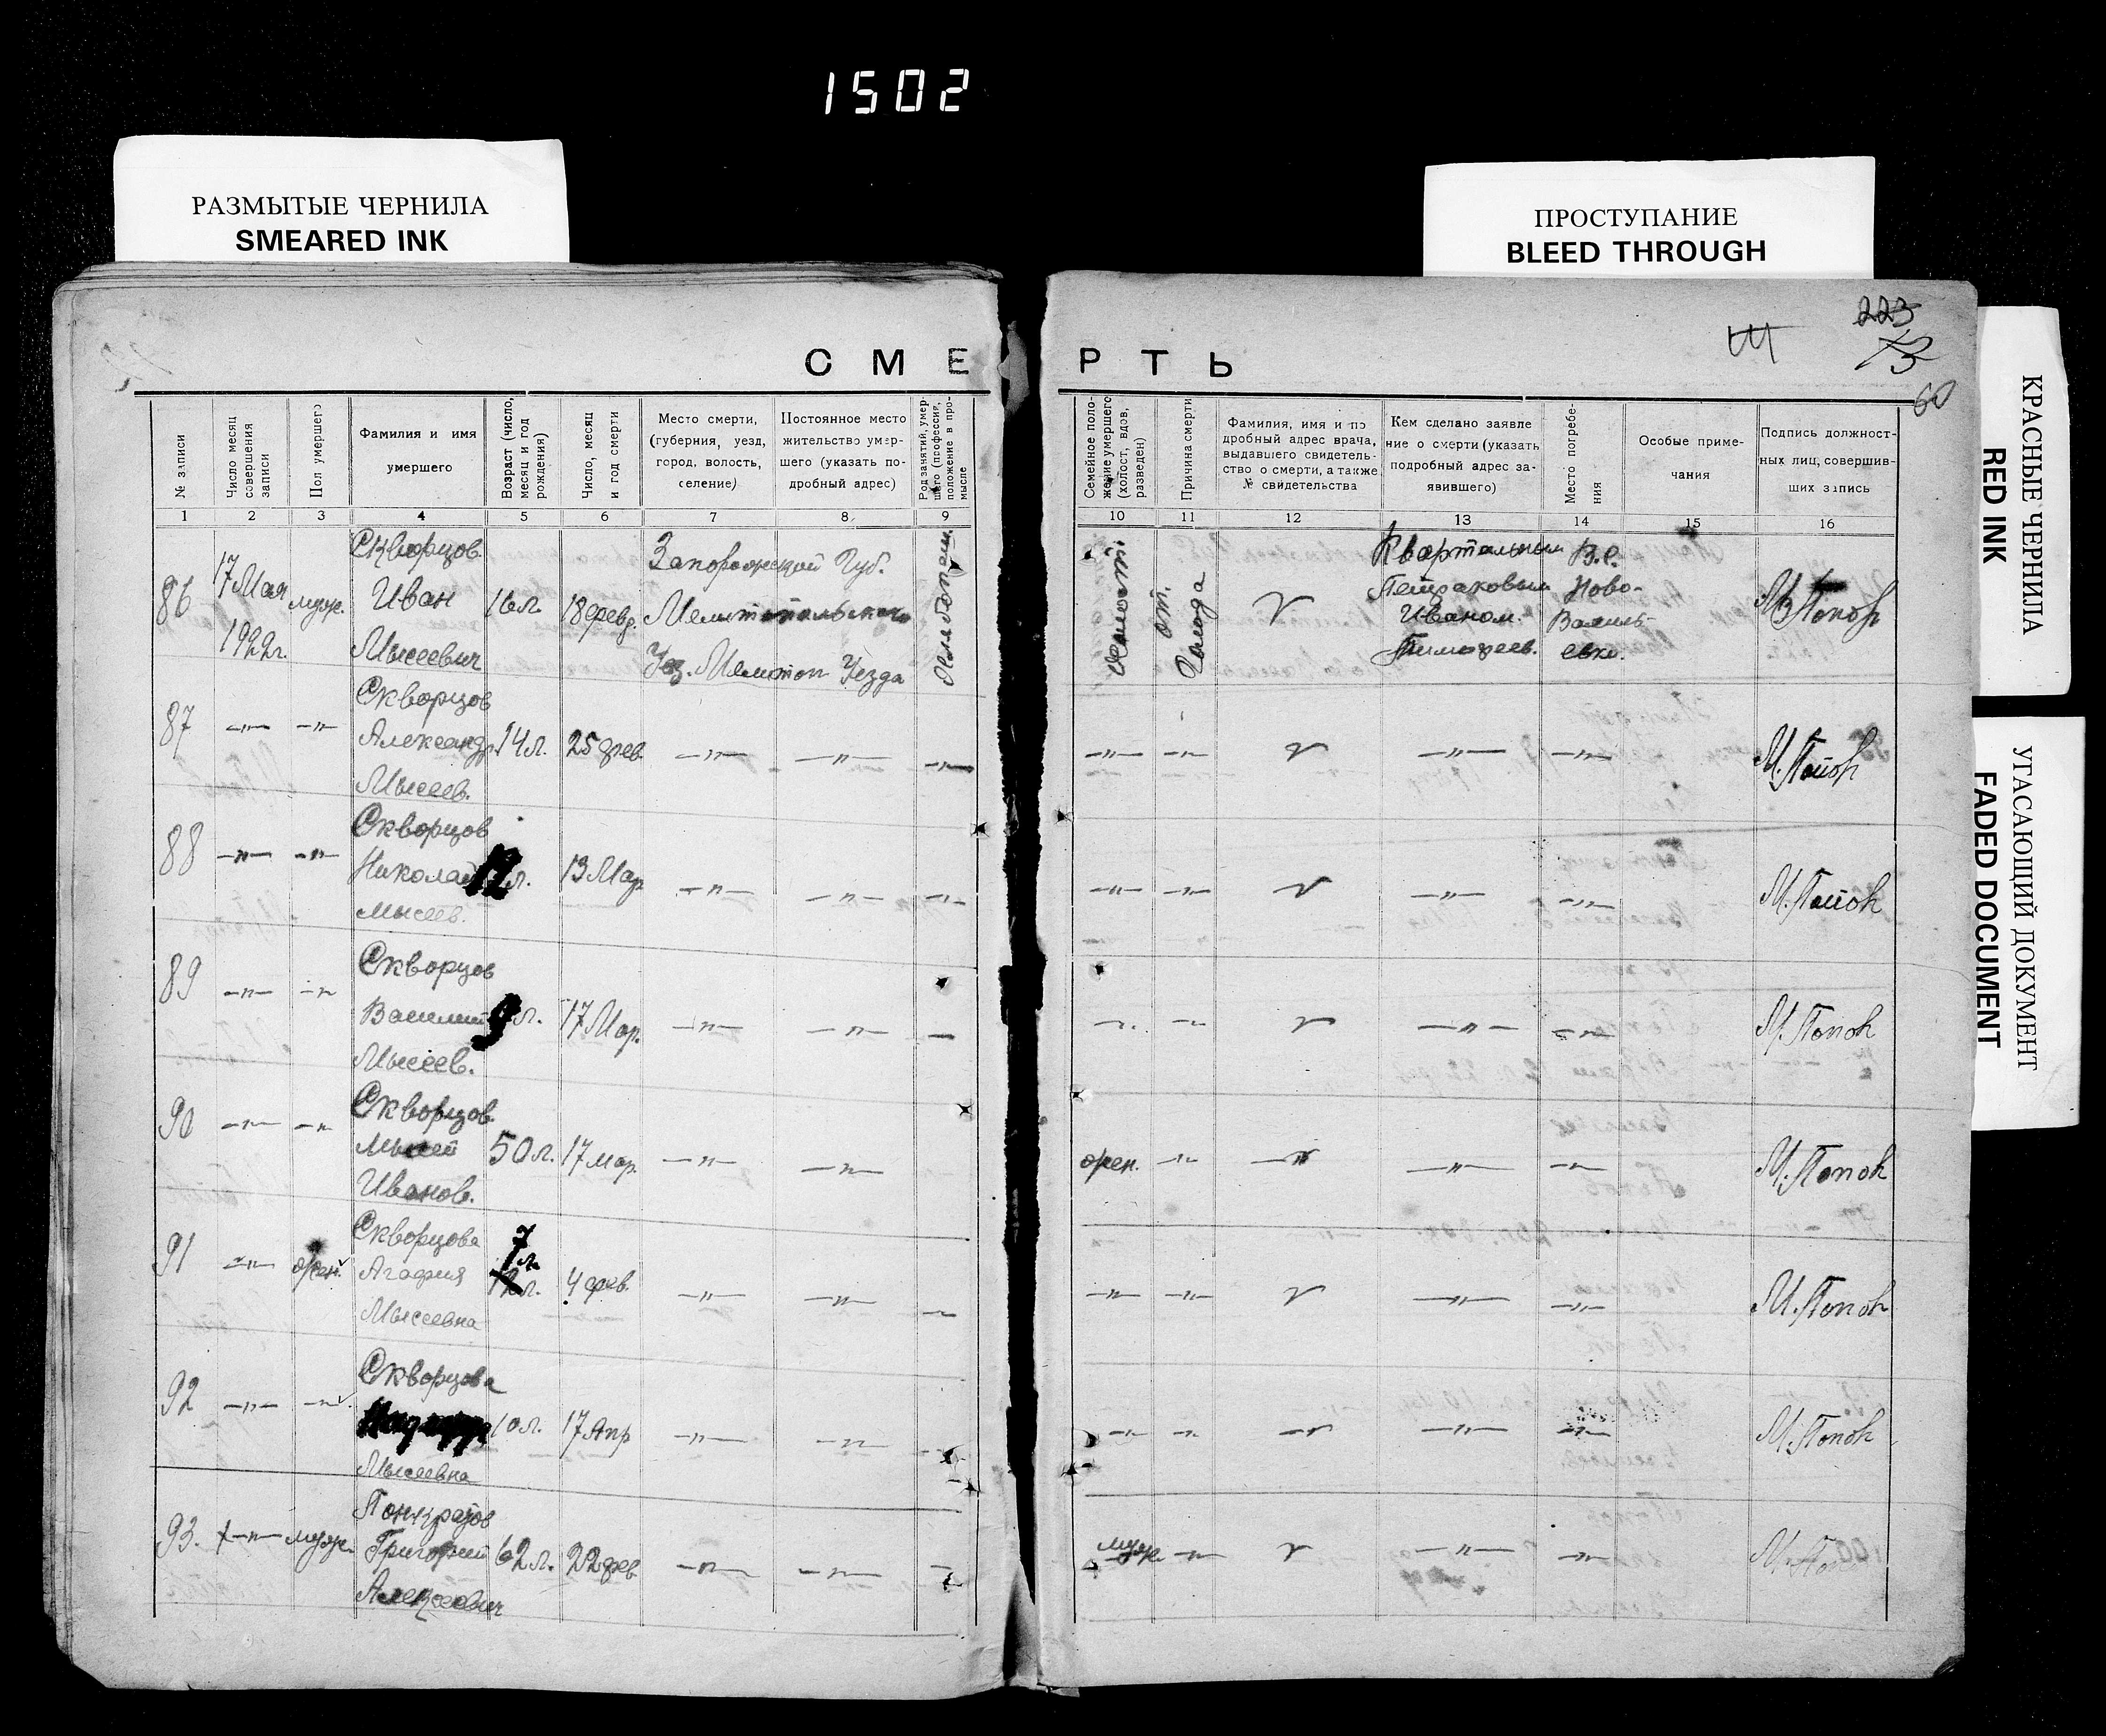 1502
РАЗМЫТЫЕ ЧЕРНИЛА
SMEARED INK
ПРОСТУПАНИЕ
BLEED THROUGH
КРАСНЫЕ ЧЕРНИЛА
RED INK
УГАСАЮЩИЙ ДОКУМЕНТ
FADED DOCUMENT
223
60
СМЕРТЬ
№ записи
Число месяц
совершения
записи
Пол умершего
Фамилия и имя
умершего
Возраст (число,
месяц и год
рождения)
Число, месяц
и год смерти
Место смерти,
(губерния, уезд,
город, волость,
селение)
Постоянное место
жительство умер-
шего (указать по-
дробный адрес)
Род занятий, умер-
шего (профессия,
положение в про-
мысле
Семейное поло-
жение умершего
(холост, вдов,
разведен)
Причина смерти
Фамилия, имя и по
дробный адрес врача,
выдавшего свидетель-
ство о смерти, а также
№ свидетельства
Кем сделано заявле
ние о смерти (указать
подробный адрес за-
явившего)
Место погребе-
ния
Особые приме-
чания
Подпись должност-
ных лиц, совершив-
ших запись
1 2 3 4 5 6 7 8 9 10 11 12 13 14 15 16
86
17 Мая
1922г.
муж.
Скворцов
Иван
Мысеевич
16 л.
18 февр.
Запорожской Губ.
Мелитопольского
Уез. Мелитоп Уезда
Холост
от.
Голода
Квартальным
Петраковым
Иваном.
Тимофеев.
В.С.
Ново-
Василь-
евка.
М Попов
87 —"— —"—
Скворцов
Александр
Мысеев.
14 л. 25 фев. —"— —"— —"— —"— —"— —"— —"—
М. Попов
88 —"— —"—
Скворцов
Николай
Мысеев.
12 л. 13 Мар —"— —"— —"— —"— —"— —"— —"—
М. Попов
89 —"— —"—
Скворцов
Василий
Мысеев.
9 л. 17 Мар. —"— —"— —"— —"— —"— —"— —"—
М. Попов
90 —"— —"—
Скворцов
Мысей
Иванов.
50 л. 17 мар. —"— —"— жен. —"— —"— —"— —"—
М. Попов
91 —"— жен.
Скворцова
Агафия
Мысеевна
7 л.
12 л. 4 фев. —"— —"— —"— —"— —"— —"— —"—
М. Попов
92 —"— —"—
Скворцова
Мысеевна
10 л. 17 Апр —"— —"— —"— —"— —"— —"— —"—
М. Попов
93. —"— муж.
Понкратов
Григорий
Алексеевич
62 л. 22 фев —"— —"— —"— муж. —"— —"— —"—
М. Поп